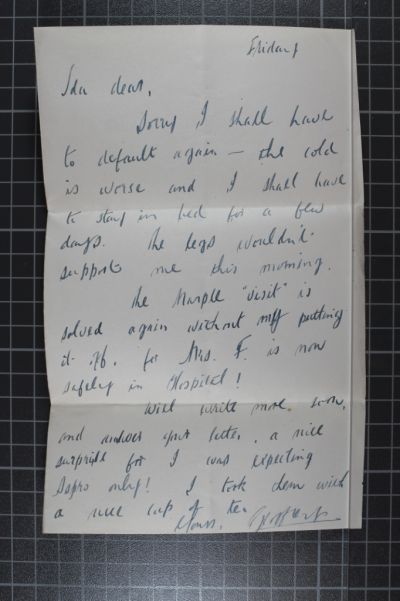 Friday
Ida dear,
Sorry I shall have
to default again — the cold
is worse and I shall have
to stay in bed for a few
days. The legs wouldn't
support me this morning.
The Marple "visit" is
solved again without my putting
it off, for Mrs. F. is now
safely in Hospital!
Will write more soon,
and answer your letter, a nice
surprise for I was expecting
Aspro only! I took them with
a nice cup of tea
Yours,